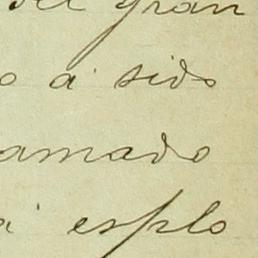 del gran
o á sido
amado
a esplo